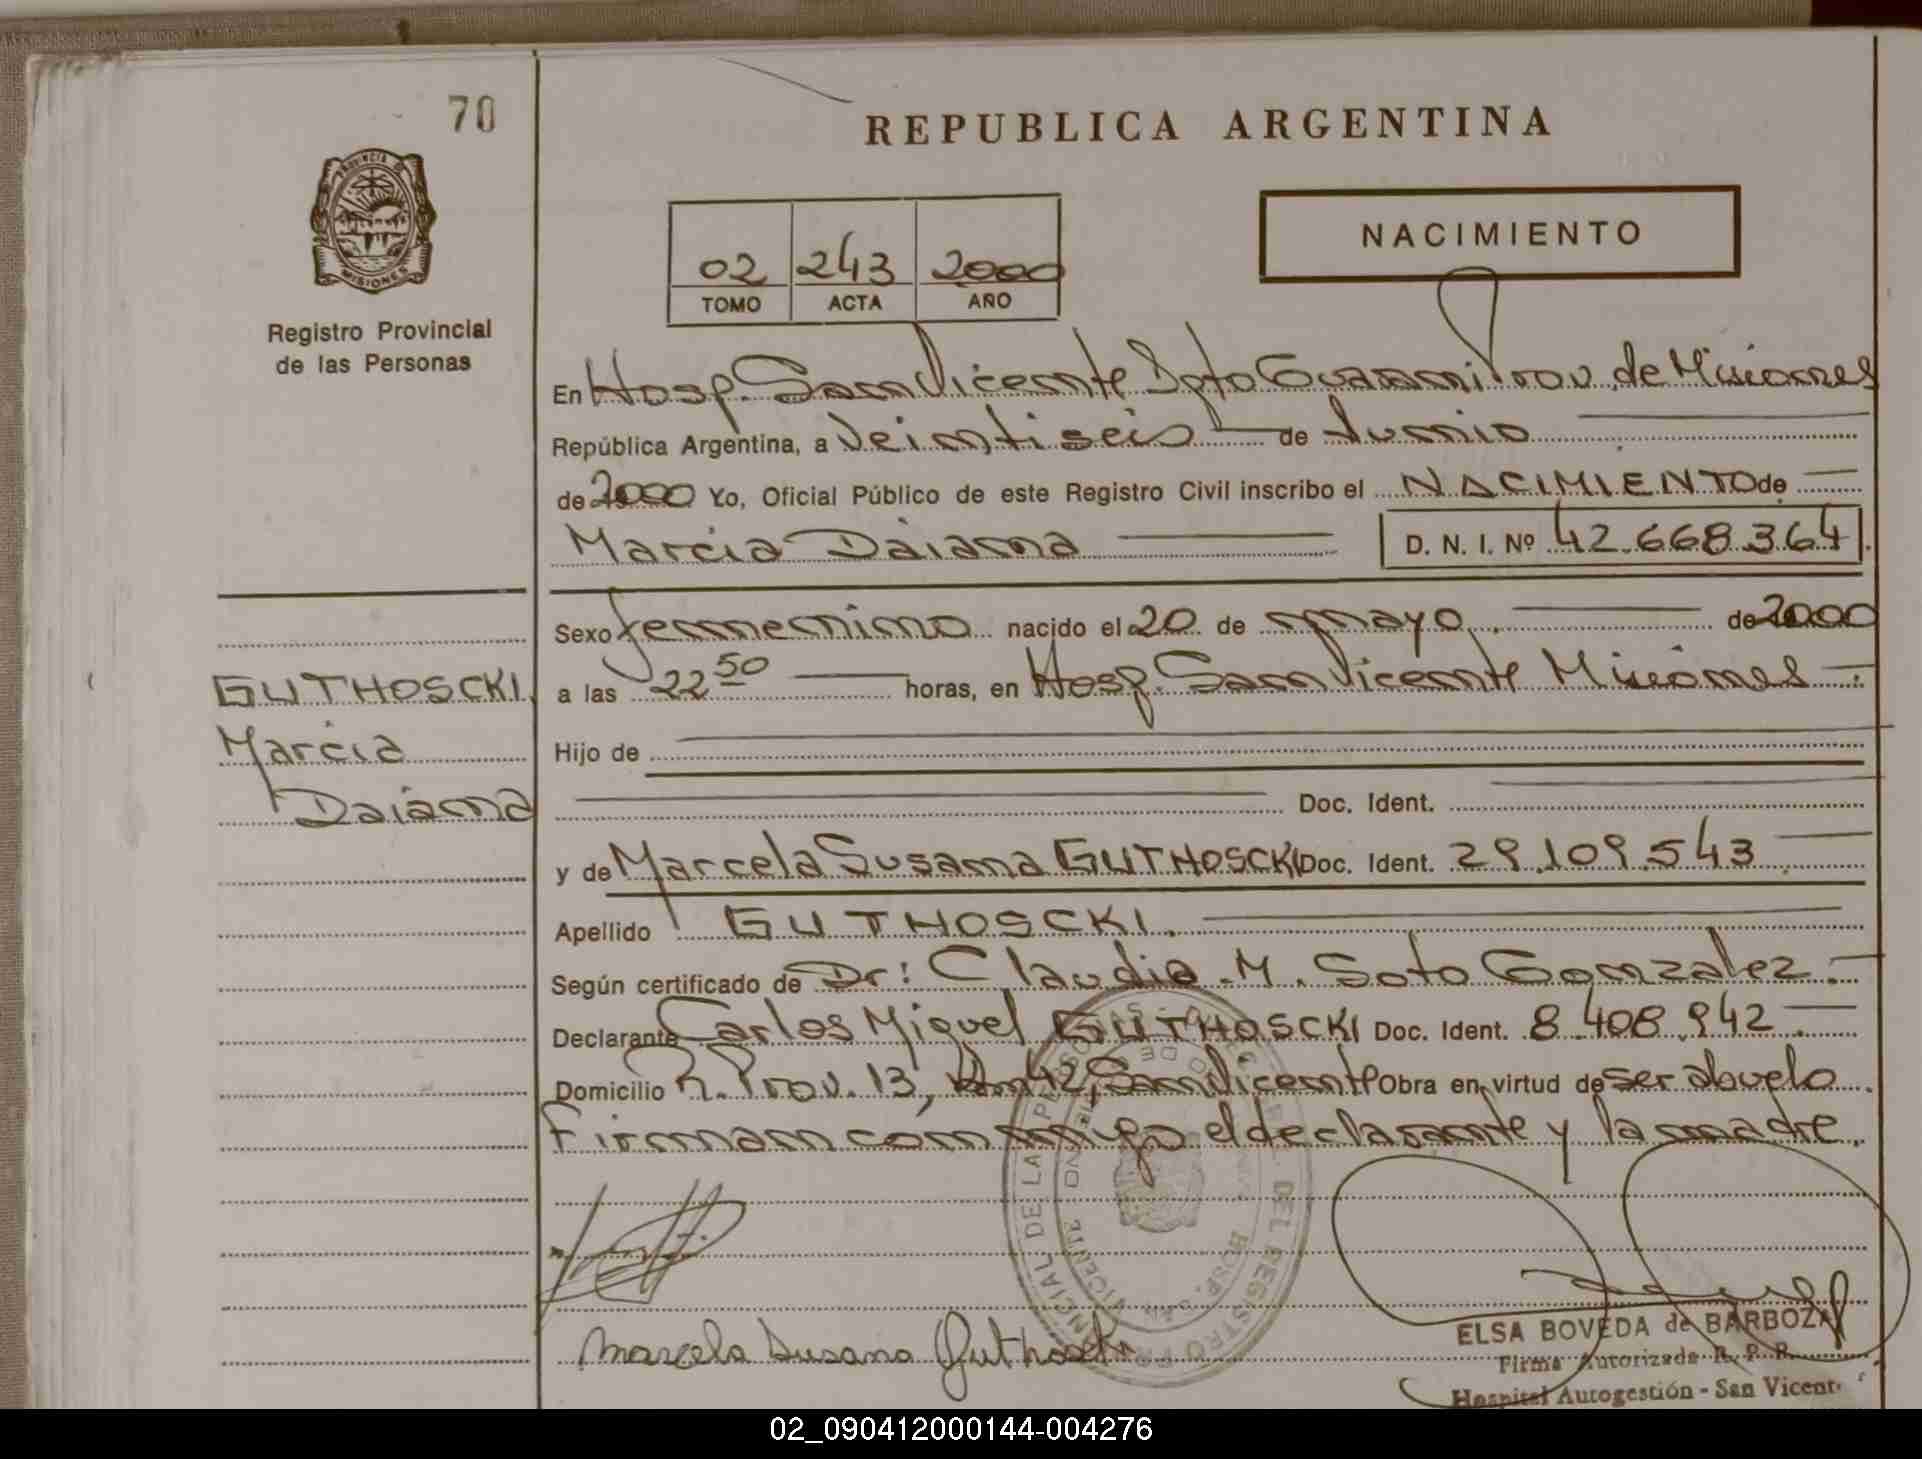 70
REPUBLICA ARGENTINA
PROVINCIA DE MISIONES
Registro Provincial
de las Personas
NACIMIENTO
02 243 2000
TOMO ACTA AÑO
En Hosp. San Vicente Dpto Guarani Prov. de Misiones
República Argentina, a Veintiseis de Junio
de 2000 Yo, Oficial Público de este Registro Civil inscribo el NACIMIENTO de
Marcia Daiana D. N. I. Nº 42.668.364
Sexo femenino nacido el 20 de mayo de 2000
a las 22 50 horas, en Hosp. San Vicente Misiones
GUTHOSCKI,
Marcia
Daiana
Hijo de
Doc. Ident.
y de Marcela Susana GUTHOSCKI Doc. Ident. 29.109.543
Apellido GUTHOSCKI.
Según certificado de Dr: Claudio M. Soto Gonzalez.
Declarante Carlos Miguel GUTHOSCKI Doc. Ident. 8.408.942
Domicilio R. Prov. 13, Km 42, San Vicente Obra en virtud de ser abuelo
Firman conmigo el declarante y la madre.
Marcela Susana Guthoscki
ELSA BOVEDA de BARBOZA
Firma Autorizada R. P. P.
Hospital Autogestión - San Vicente
02_090412000144-004276